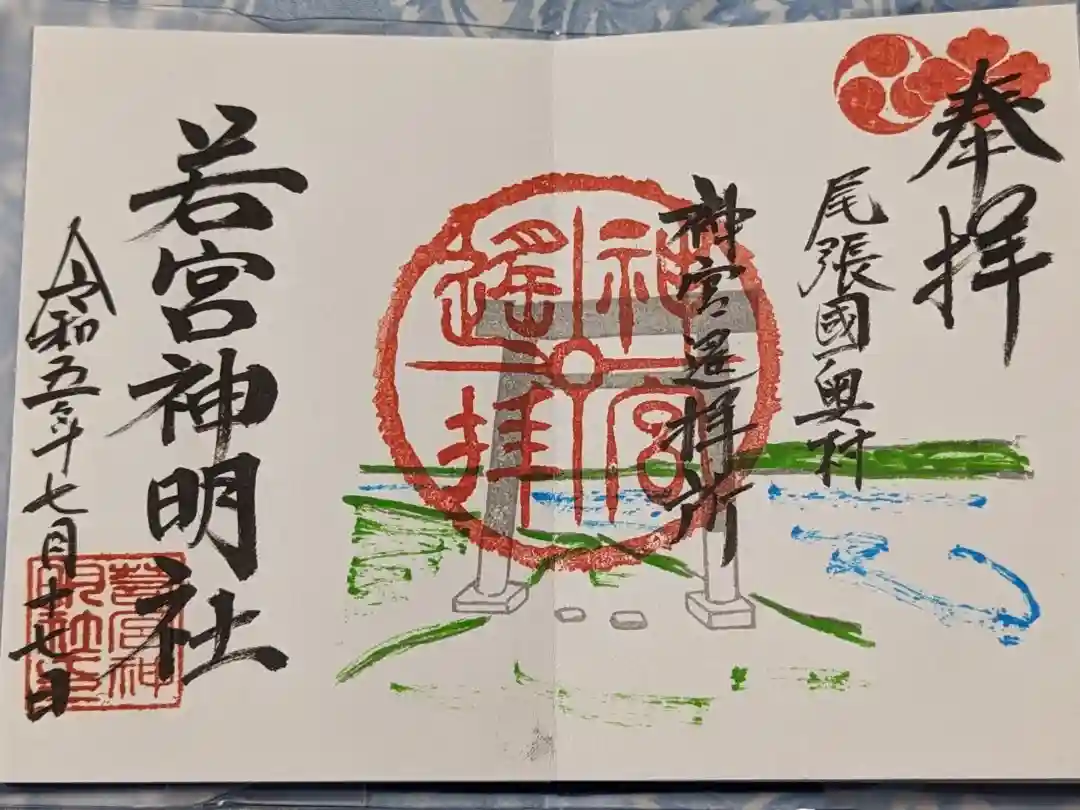 奉拝
尾張國奥村
神宮遥拝所
神宮遙拝
若宮神明社
令和五年七月十七日